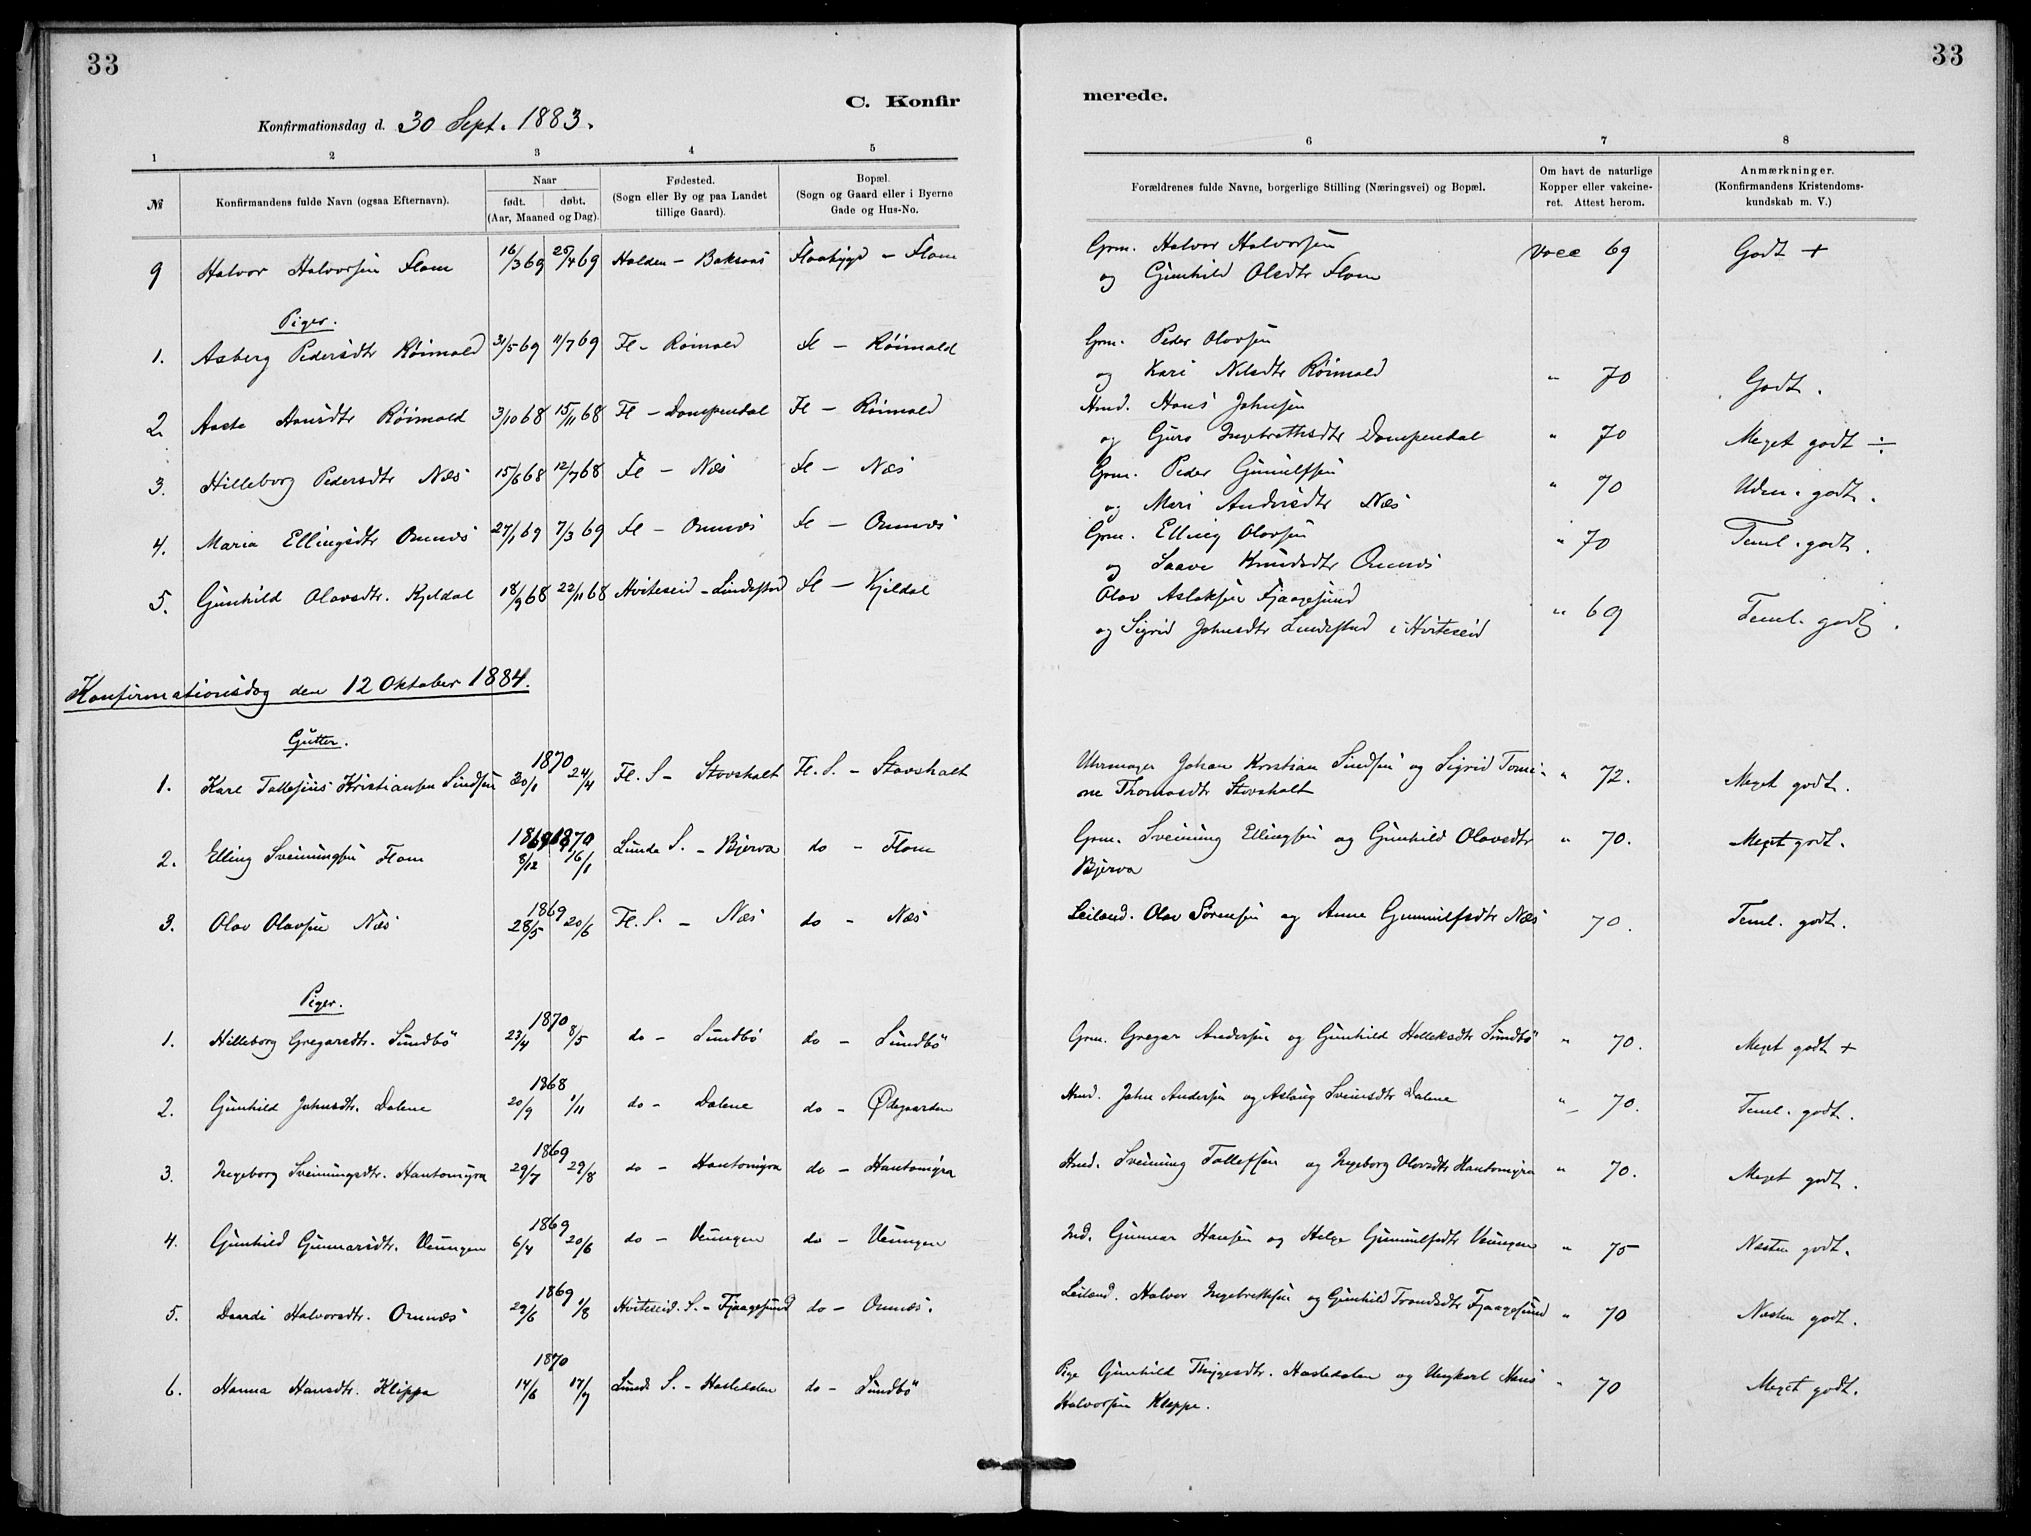 33
33
C. Konfir
merede.
Konfirmationsdag d. 30 Sept. 1883.
1 2 3 4 5 6 7 8
№ Konfirmandens fulde Navn (ogsaa Efternavn). Naar født. døbt. (Aar, Maaned og Dag). Fødested. (Sogn eller By og paa Landet tillige Gaard). Bopæl. (Sogn og Gaard eller i Byerne Gade og Hus-No.
Forældrenes fulde Navne, borgerlige Stilling (Næringsvei) og Bopæl. Om havt de naturlige Kopper eller vakcineret. Attest herom. Anmærkninger. (Konfirmandens Kristendomskundskab m. V.)
9 Halvor Halvorsen Flom 16/3 69 25/4 69 Holden - Baksaas Flaabygd - Flom Grm. Halvor Halvorsen vacc 69 Godt +
og Gunhild Olsdtr Flom
Piger.
1. Asberg Pedersdtr Röimald 31/5 69 11/7 69 Fl - Röimald Fl - Röimald Grm. Peder Olavsen
og Kari Nilsdtr Röimald " 70 Godt.
2. Aaste Hansdtr Röimald 3/10 68 15/11 68 Fl - Dampendal Fl - Röimald Hmd. Hans Johnsen
og Guro Ingebrethsdtr Dampendal " 70 Meget godt ÷
3. Hilleborg Pedersdtr Næs 15/6 68 12/7 68 Fl - Næs Fl - Næs Grm. Peder Gunulfsen
og Mari Andersdtr Næs " 70 Uden. godt.
4. Maria Ellingsdtr Omnæs 27/1 69 7/3 69 Fl - Omnæs Fl - Omnæs Grm. Elling Olavsen
og Saave Knudsdtr Omnæs " 70 Teml. godt.
5. Gunhild Olavsdtr. Kjeldal 18/9 68 22/11 68 Hviteseid - Lindestad Fl - Kjeldal Olav Aslaksen Fjaagesund
og Sigrid Johnsdtr Lindestad i Hviteseid " 69 Teml. godt.
Konfirmationsdag den 12 Oktober 1884.
Gutter.
1. Karl Tallefius Kristiansen Sindsen 1870 30/1 24/4 Fl. S - Stovshalt Fl. S. - Stovshalt Uhrmager Johan Kristian Sindsen og Sigrid Tomi-
ne Thomasdtr Stovshalt " 72. Meget godt.
2. Elling Sveinungsen Flom 1869 1870 8/12 16/1 Lunde S. - Bjerva do - Flom Grm. Sveinung Ellingsen og Gunhild Olavsdtr " 70. Meget godt.
Bjerva
3. Olav Olavsen Næs 1869 28/5 20/6 Fl. S. - Næs do - Næs Leiland. Olav Sörensen og Anne Gunnulfsdtr Næs 70. Teml. godt.
Piger.
1. Hilleborg Gregarsdtr. Sundbö 1870 23/4 8/5 do - Sundbö do - Sundbö Grm. Gregar Andersen og Gunhild Holleksdtr Sundbö " 70. Meget godt +
2. Gunhild Johnsdtr. Dalene 1868 20/9 1/11 do - Dalene do - Ødegaarden Hmd. John Andersen og Aslaug Sveinsdtr Dalene " 70. Teml. godt.
3. Ingeborg Sveinungsdtr. Hantomyra 1869 29/7 29/8 do - Hantomyra do - Hantomyra Hmd. Sveinung Tollefsen og Ingeborg Olavsdtr Hantomyra " 70. Meget godt.
4. Gunhild Gunnarsdtr. Veungen 1869 6/4 20/6 do - Veungen do - Veungen Ind. Gunnar Hansen og Helge Gunnulfsdtr Veungen " 75 Næsten godt.
5. Daardi Halvorsdtr. Omnæs 1869 29/6 1/8 Hviteseid. S. - Fjaagesund do - Omnæs. Leiland. Halvor Ingebretsen og Gunhild Trondsdtr Fjaagesund " 70 Næsten godt.
6. Hanna Hansdtr. Klippa 1870 14/6 17/7 Lunde S. - Hasledalen do - Sundbö Pige Gunhild Thygesdtr. Hasledalen og Ungkarl Hans " 70 Meget godt.
Halvorsen Kleppe.